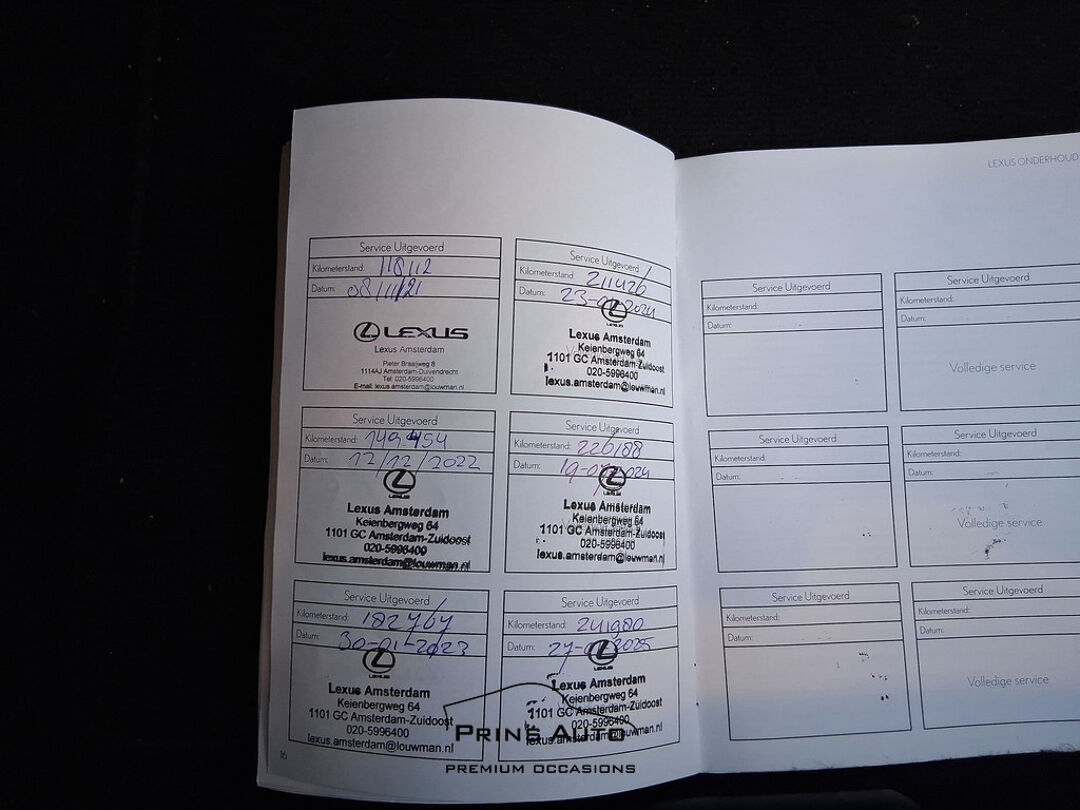 LEXUS ONDERHOUD
Service Uitgevoerd
Kilometerstand: 118112
Datum: 08/11/21
LEXUS
Lexus Amsterdam
Pieter Braaijweg 8
1114AJ Amsterdam-Duivendrecht
Tel: 020-5996400
E-mail: lexus.amsterdam@louwman.nl
Service Uitgevoerd
Kilometerstand: 149454
Datum: 12/12/2022
LEXUS
Lexus Amsterdam
Keienbergweg 64
1101 GC Amsterdam-Zuidoost
020-5996400
lexus.amsterdam@louwman.nl
Service Uitgevoerd
Kilometerstand:
Datum: 30-01-2023
LEXUS
Lexus Amsterdam
Keienbergweg 64
1101 GC Amsterdam-Zuidoost
020-5996400
lexus.amsterdam@louwman.nl
16
Service Uitgevoerd
Kilometerstand: 211426
Datum:
LEXUS
Lexus Amsterdam
Keienbergweg 64
1101 GC Amsterdam-Zuidoost
020-5996400
lexus.amsterdam@louwman.nl
Service Uitgevoerd
Kilometerstand: 226188
Datum:
LEXUS
Lexus Amsterdam
Keienbergweg 64
1101 GC Amsterdam-Zuidoost
020-5996400
lexus.amsterdam@louwman.nl
Service Uitgevoerd
Kilometerstand: 241980
Datum:
LEXUS
Lexus Amsterdam
Keienbergweg 64
1101 GC Amsterdam-Zuidoost
020-5996400
lexus.amsterdam@louwman.nl
PRINS AUTO
PREMIUM OCCASIONS
Service Uitgevoerd
Kilometerstand:
Datum:
Service Uitgevoerd
Kilometerstand:
Datum:
Service Uitgevoerd
Kilometerstand:
Datum:
Service Uitgevoerd
Kilometerstand:
Datum:
Volledige service
Service Uitgevoerd
Kilometerstand:
Datum:
Volledige service
Service Uitgevoerd
Kilometerstand:
Datum:
Volledige service